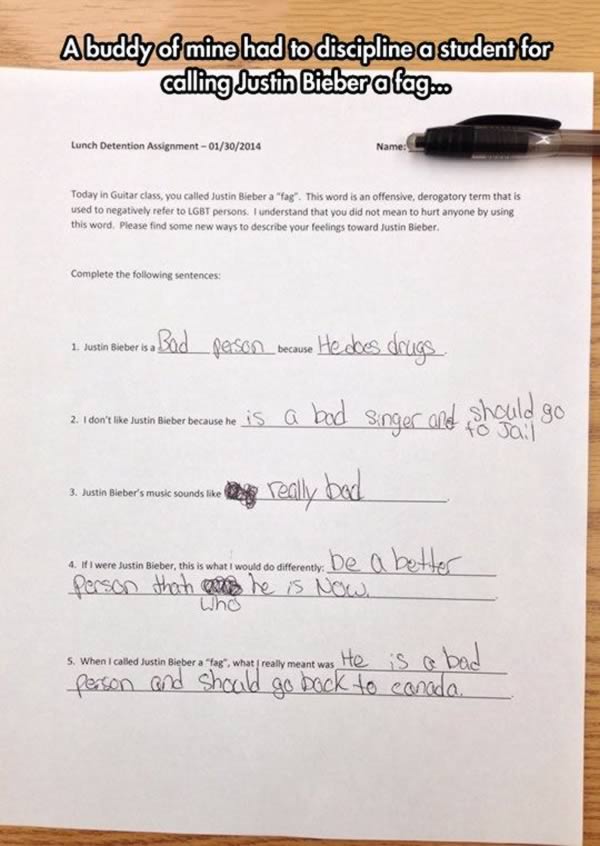 A buddy of mine had to discipline a student for
calling Justin Bieber a fag...
Lunch Detention Assignment – 01/30/2014 Name:
Today in Guitar class, you called Justin Bieber a "fag". This word is an offensive, derogatory term that is
used to negatively refer to LGBT persons. I understand that you did not mean to hurt anyone by using
this word. Please find some new ways to describe your feelings toward Justin Bieber.
Complete the following sentences:
1. Justin Bieber is a Bad person because He does drugs.
2. I don't like Justin Bieber because he is a bad singer and should go
to Jail
3. Justin Bieber's music sounds like really bad
4. If I were Justin Bieber, this is what I would do differently: be a better
person than he is Now.
who
5. When I called Justin Bieber a "fag", what I really meant was He is a bad
person and should go back to canada.